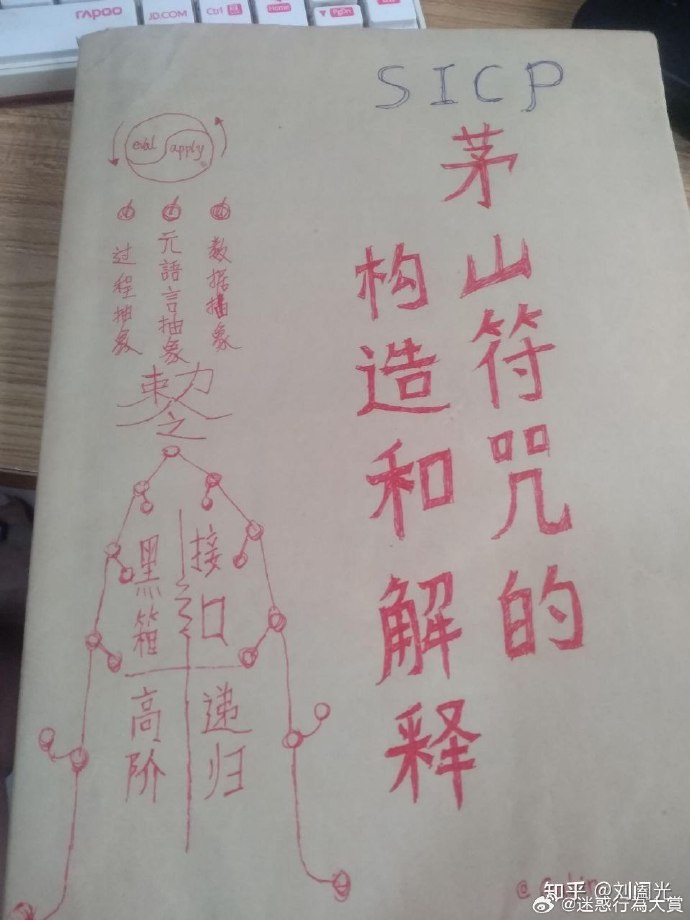 RAPOO
JD.COM
Ctrl
Home
PgDn
SICP
茅山符咒的
构造和解释
eval apply
数据抽象
元語言抽象
过程抽象
敕之
接口
黑箱
递归
高阶
知乎 @刘阖光
@迷惑行為大賞